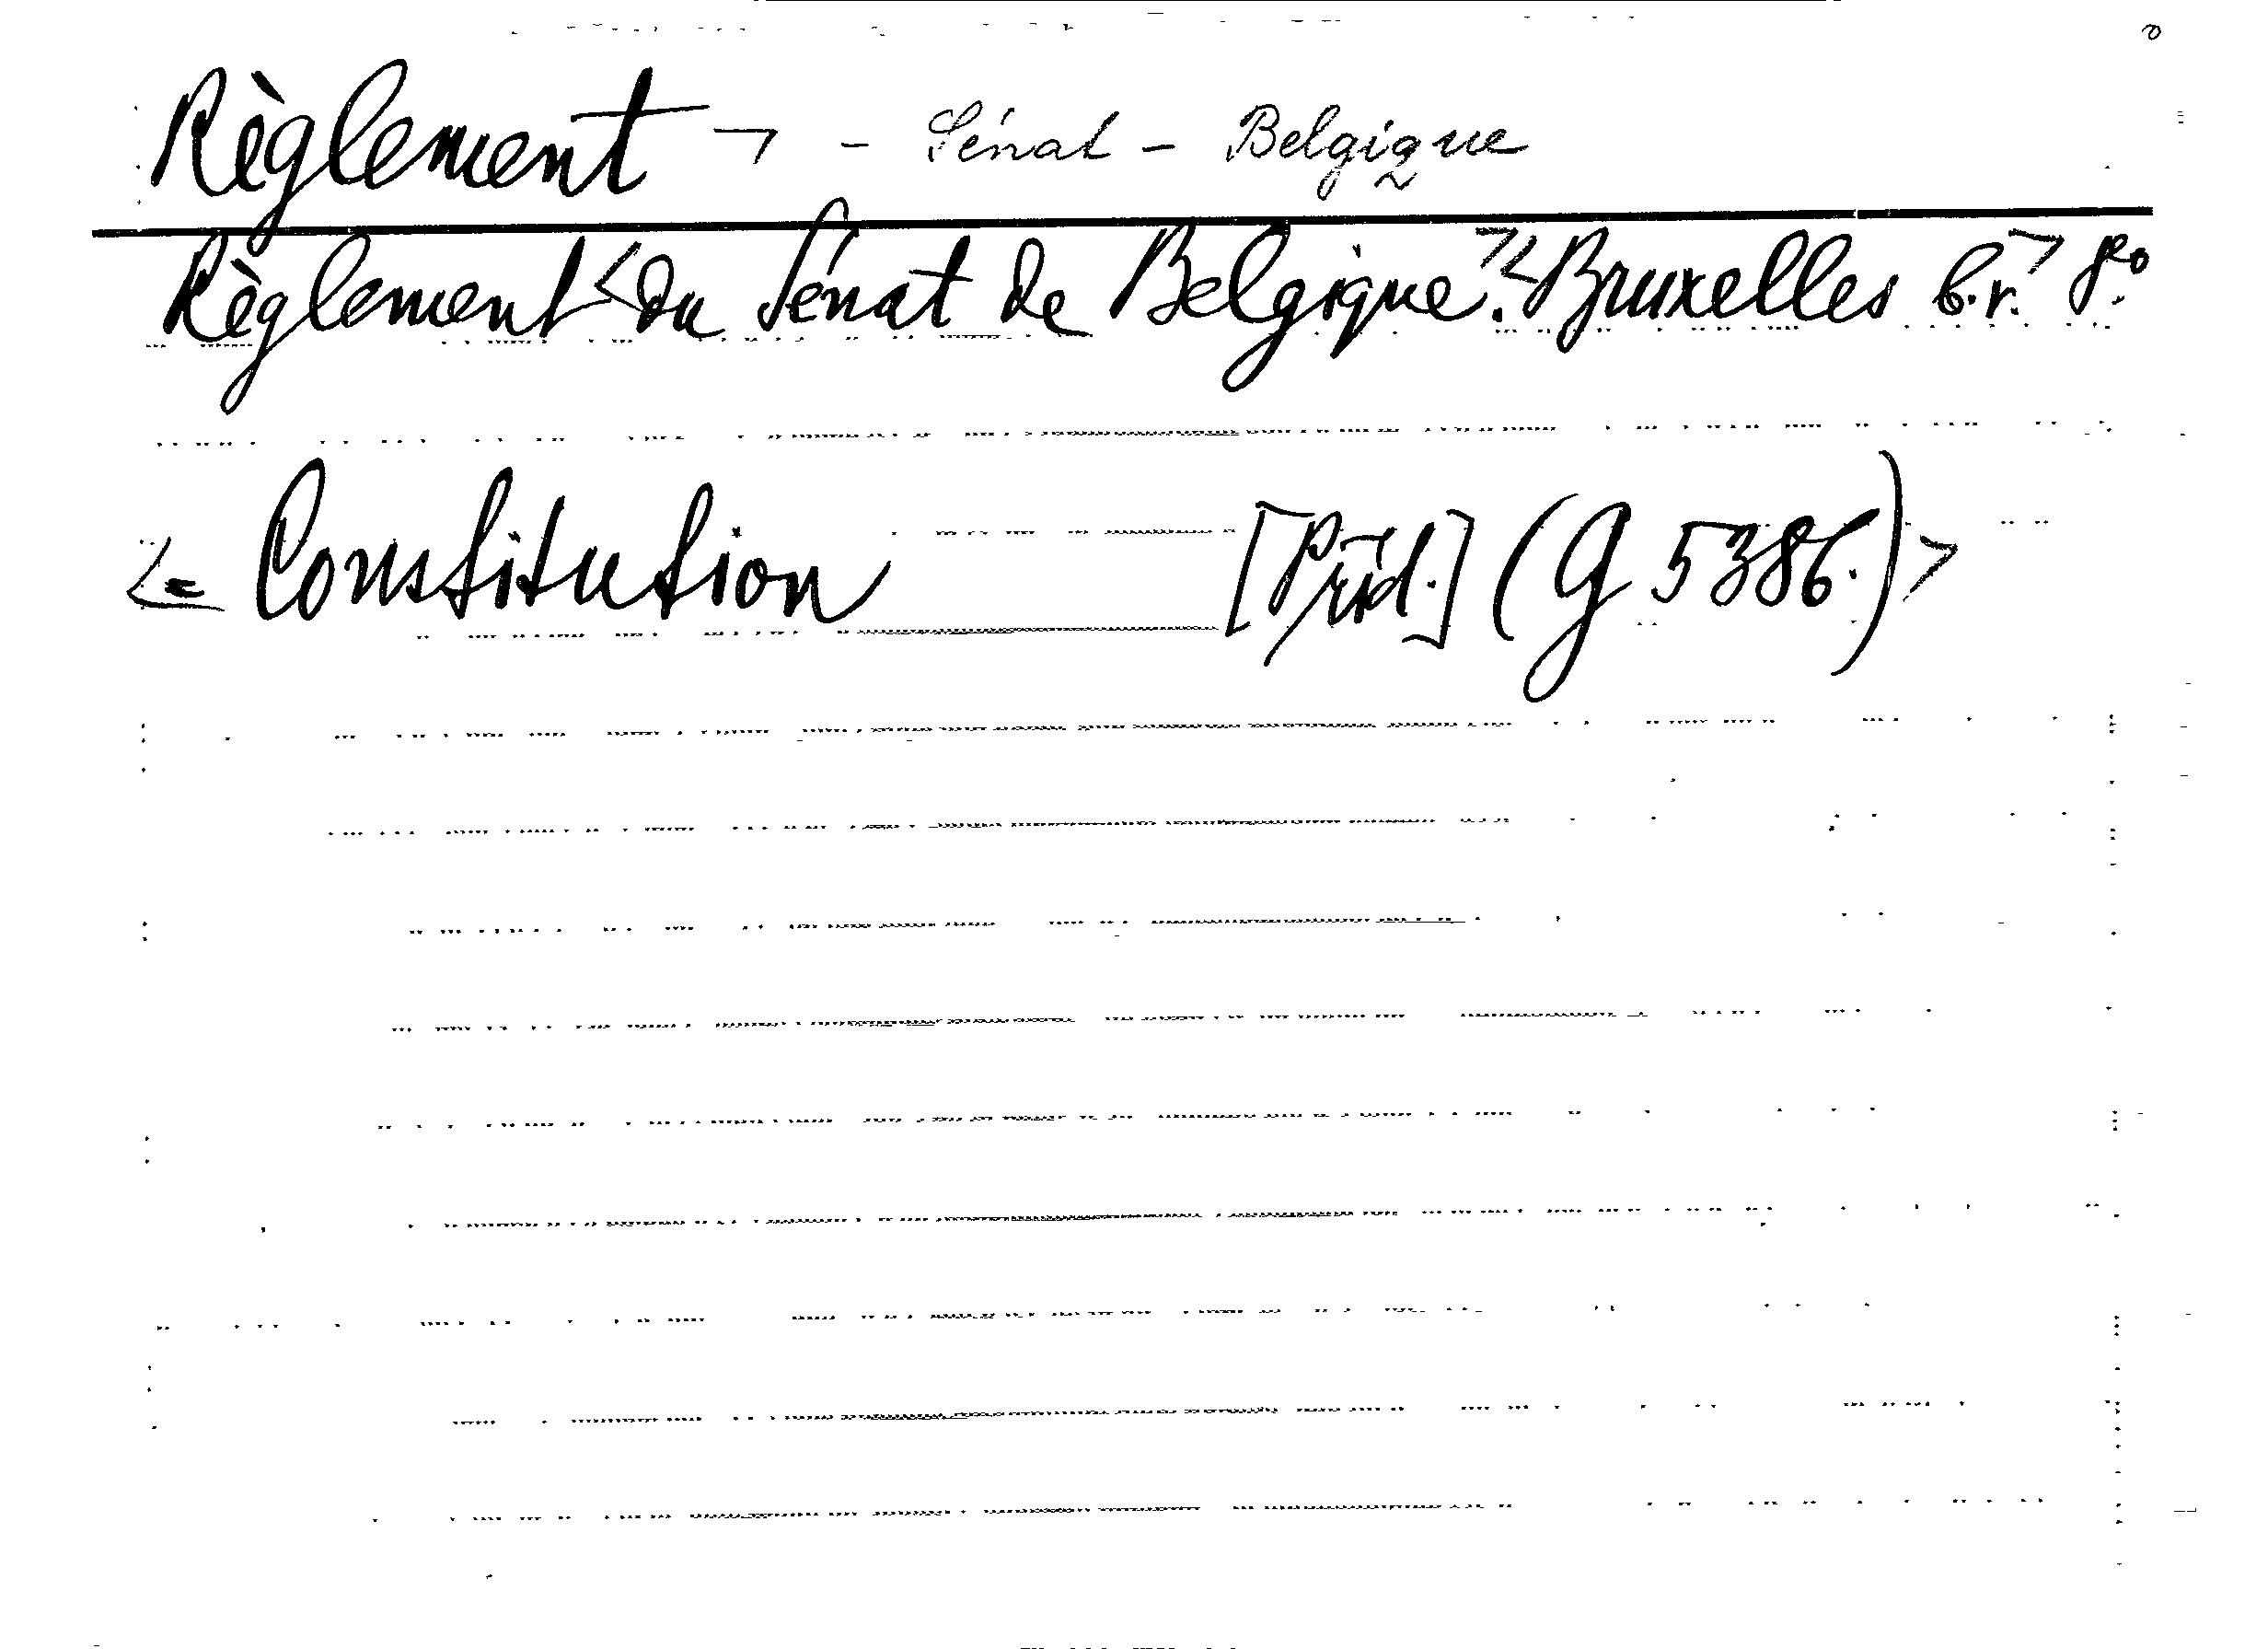 Règlement ¬ - Sénat - Belgique
Règlement <du Sénat de Belgique.> <Bruxelles b.r.> 8.º
<= Constitution [Präd.] (G 5386.)>